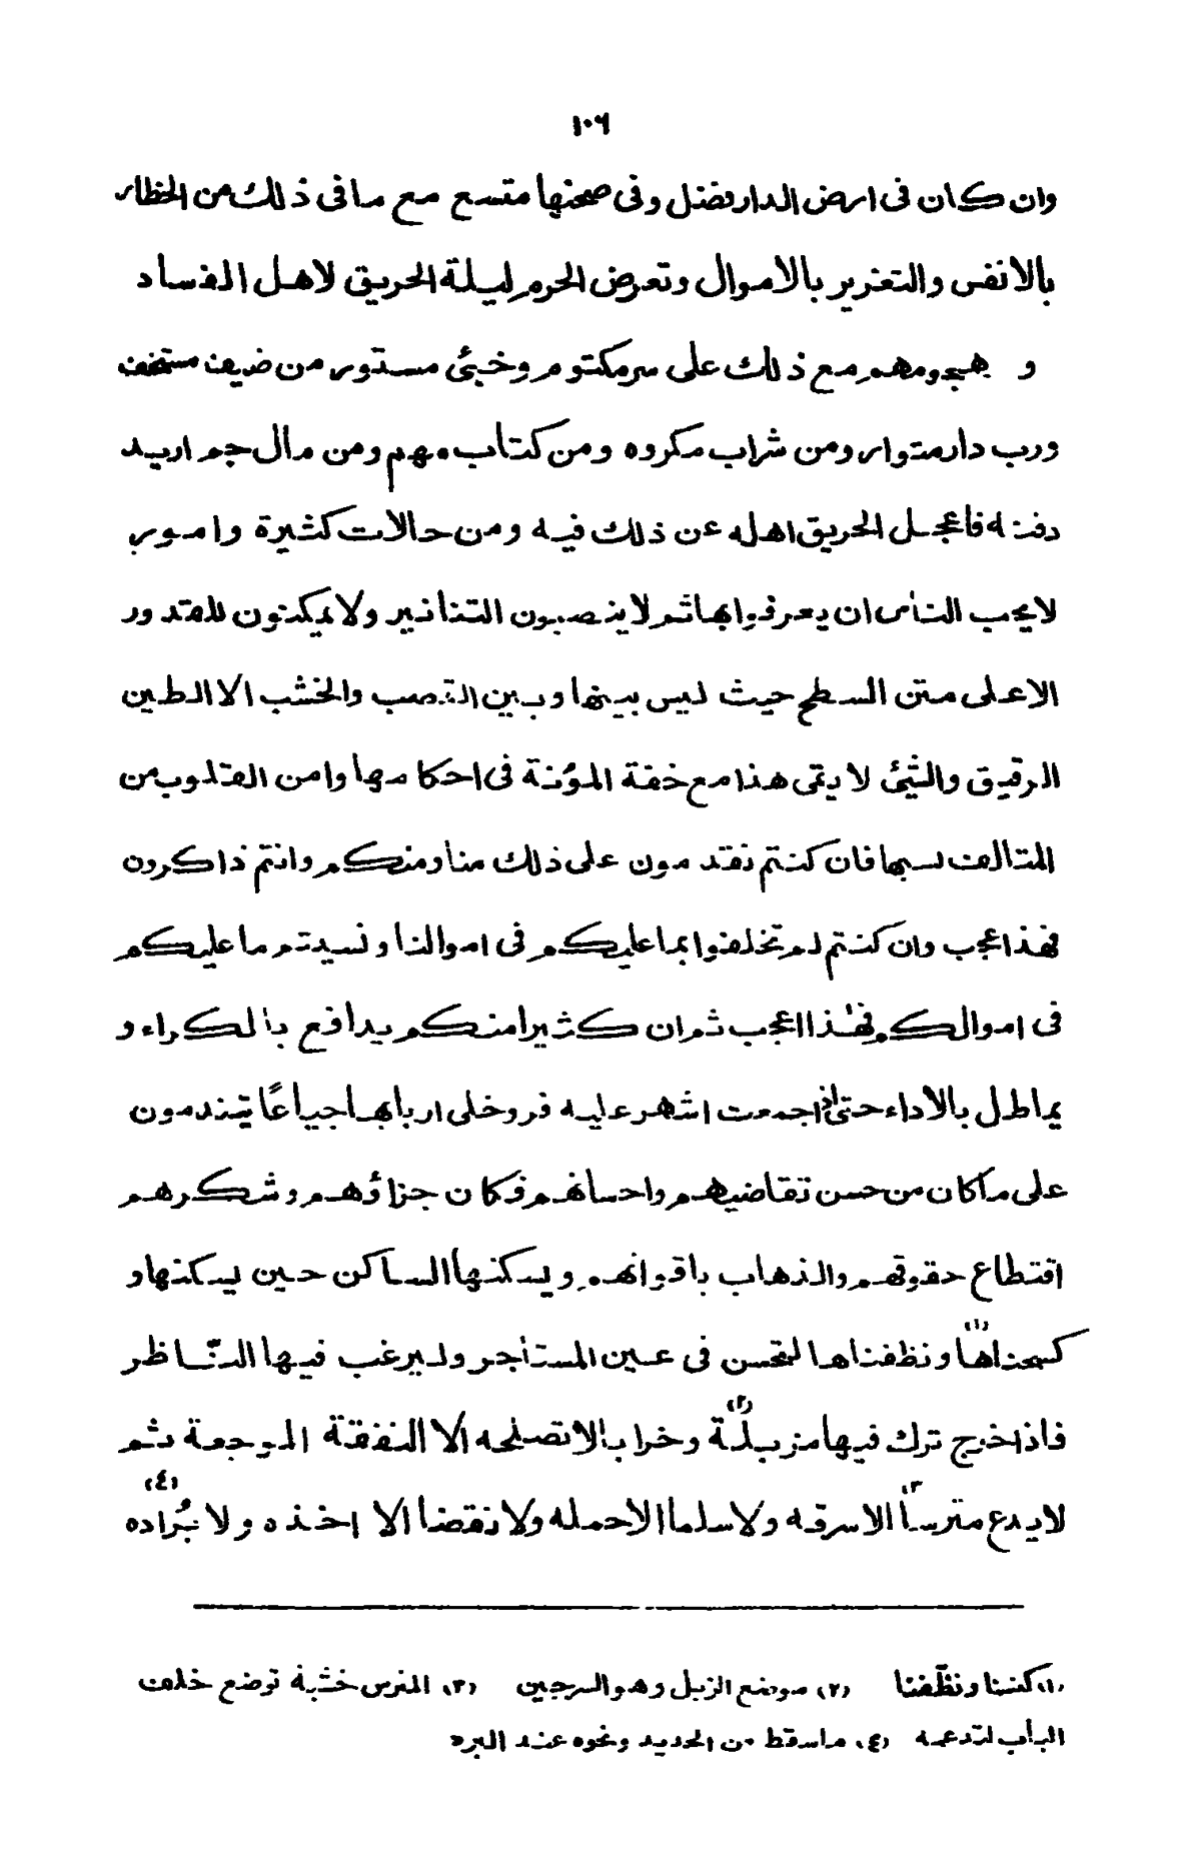 ١٠٦
وان كان فى ارض الدار فضل وفى صحنها متسع مع ما فى ذلك من الخطار
بالانفس والتغرير بالاموال وتعرض الحرم ليلة الحريق لاهل الفساد
و هجومهم مع ذلك على سر مكتوم وخبئ مستور من ضيف مستخف
ورب دار متوار ومن شراب مكروه ومن كتاب مهم ومن مال جم اريد
دفنه فاعجل الحريق اهله عن ذلك فيه ومن حالات كثيرة وامور
لا يحب الناس ان يعرفوا بها ثم لا ينصبون التنانير ولا يمكنون للقدور
الا على متن السطح حيث ليس بينها وبين القصب والخشب الا الطين
الرقيق والشئ لا يقى هذا مع خفة المؤنة فى احكامها وامن القلوب من
المتالف لسبها فان كنتم تقدمون على ذلك منا ومنكم وانتم ذاكرون
فهذا عجب وان كنتم لم تحلفوا بما عليكم فى اموالنا ونسيتم ما عليكم
فى اموالكم فهذا اعجب ثم ان كثيرا منكم يدافع بالكراء و
يماطل بالاداء حتى اذا جمعت اشهر عليه فر وخلى اربابها جياعًا يتندمون
على ماكان من حسن تقاضيهم واحسانهم فكان جزاؤهم وشكرهم
اقتطاع حقوقهم والذهاب باقواتهم ويسكنها الساكن حين يسكنها و
كسحناها (١) ونظفناها لتحسن فى عين المستأجر وليرغب فيها النّاظر
فاذا خرج ترك فيها مزبلة (٢) وخرابا لا تصلحه الا النفقة الموجعة ثم
لا يدع مترسا (٣) الا سرقه ولا سلما الا حمله ولا نقضا الا اخذه ولا بُرَاده (٤)
(١) كنسنا ونظّفنا (٢) موضع الزبل وهو السرجين (٣) المترس خشبة توضع خلف
الباب لتدعمه (٤) ماسقط من الحديد ونحوه عند البرد